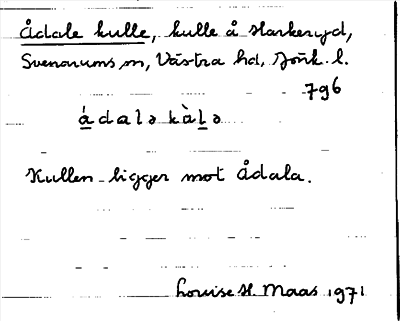 Ådale kulle, kulle å Harkeryd,
Svenarums sn, Västra hd, Jönk. l.
796
ádalə kàlə
Kullen ligger mot Ådala.
Louise H. Maas 1971